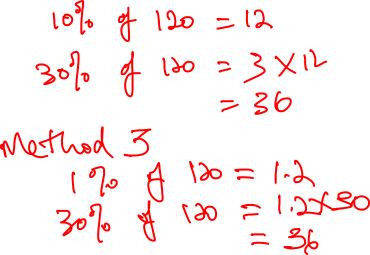 10% of 120 = 12
30% of 120 = 3 × 12
= 36
Method 3
1% of 120 = 1.2
30% of 120 = 1.2×30
= 36